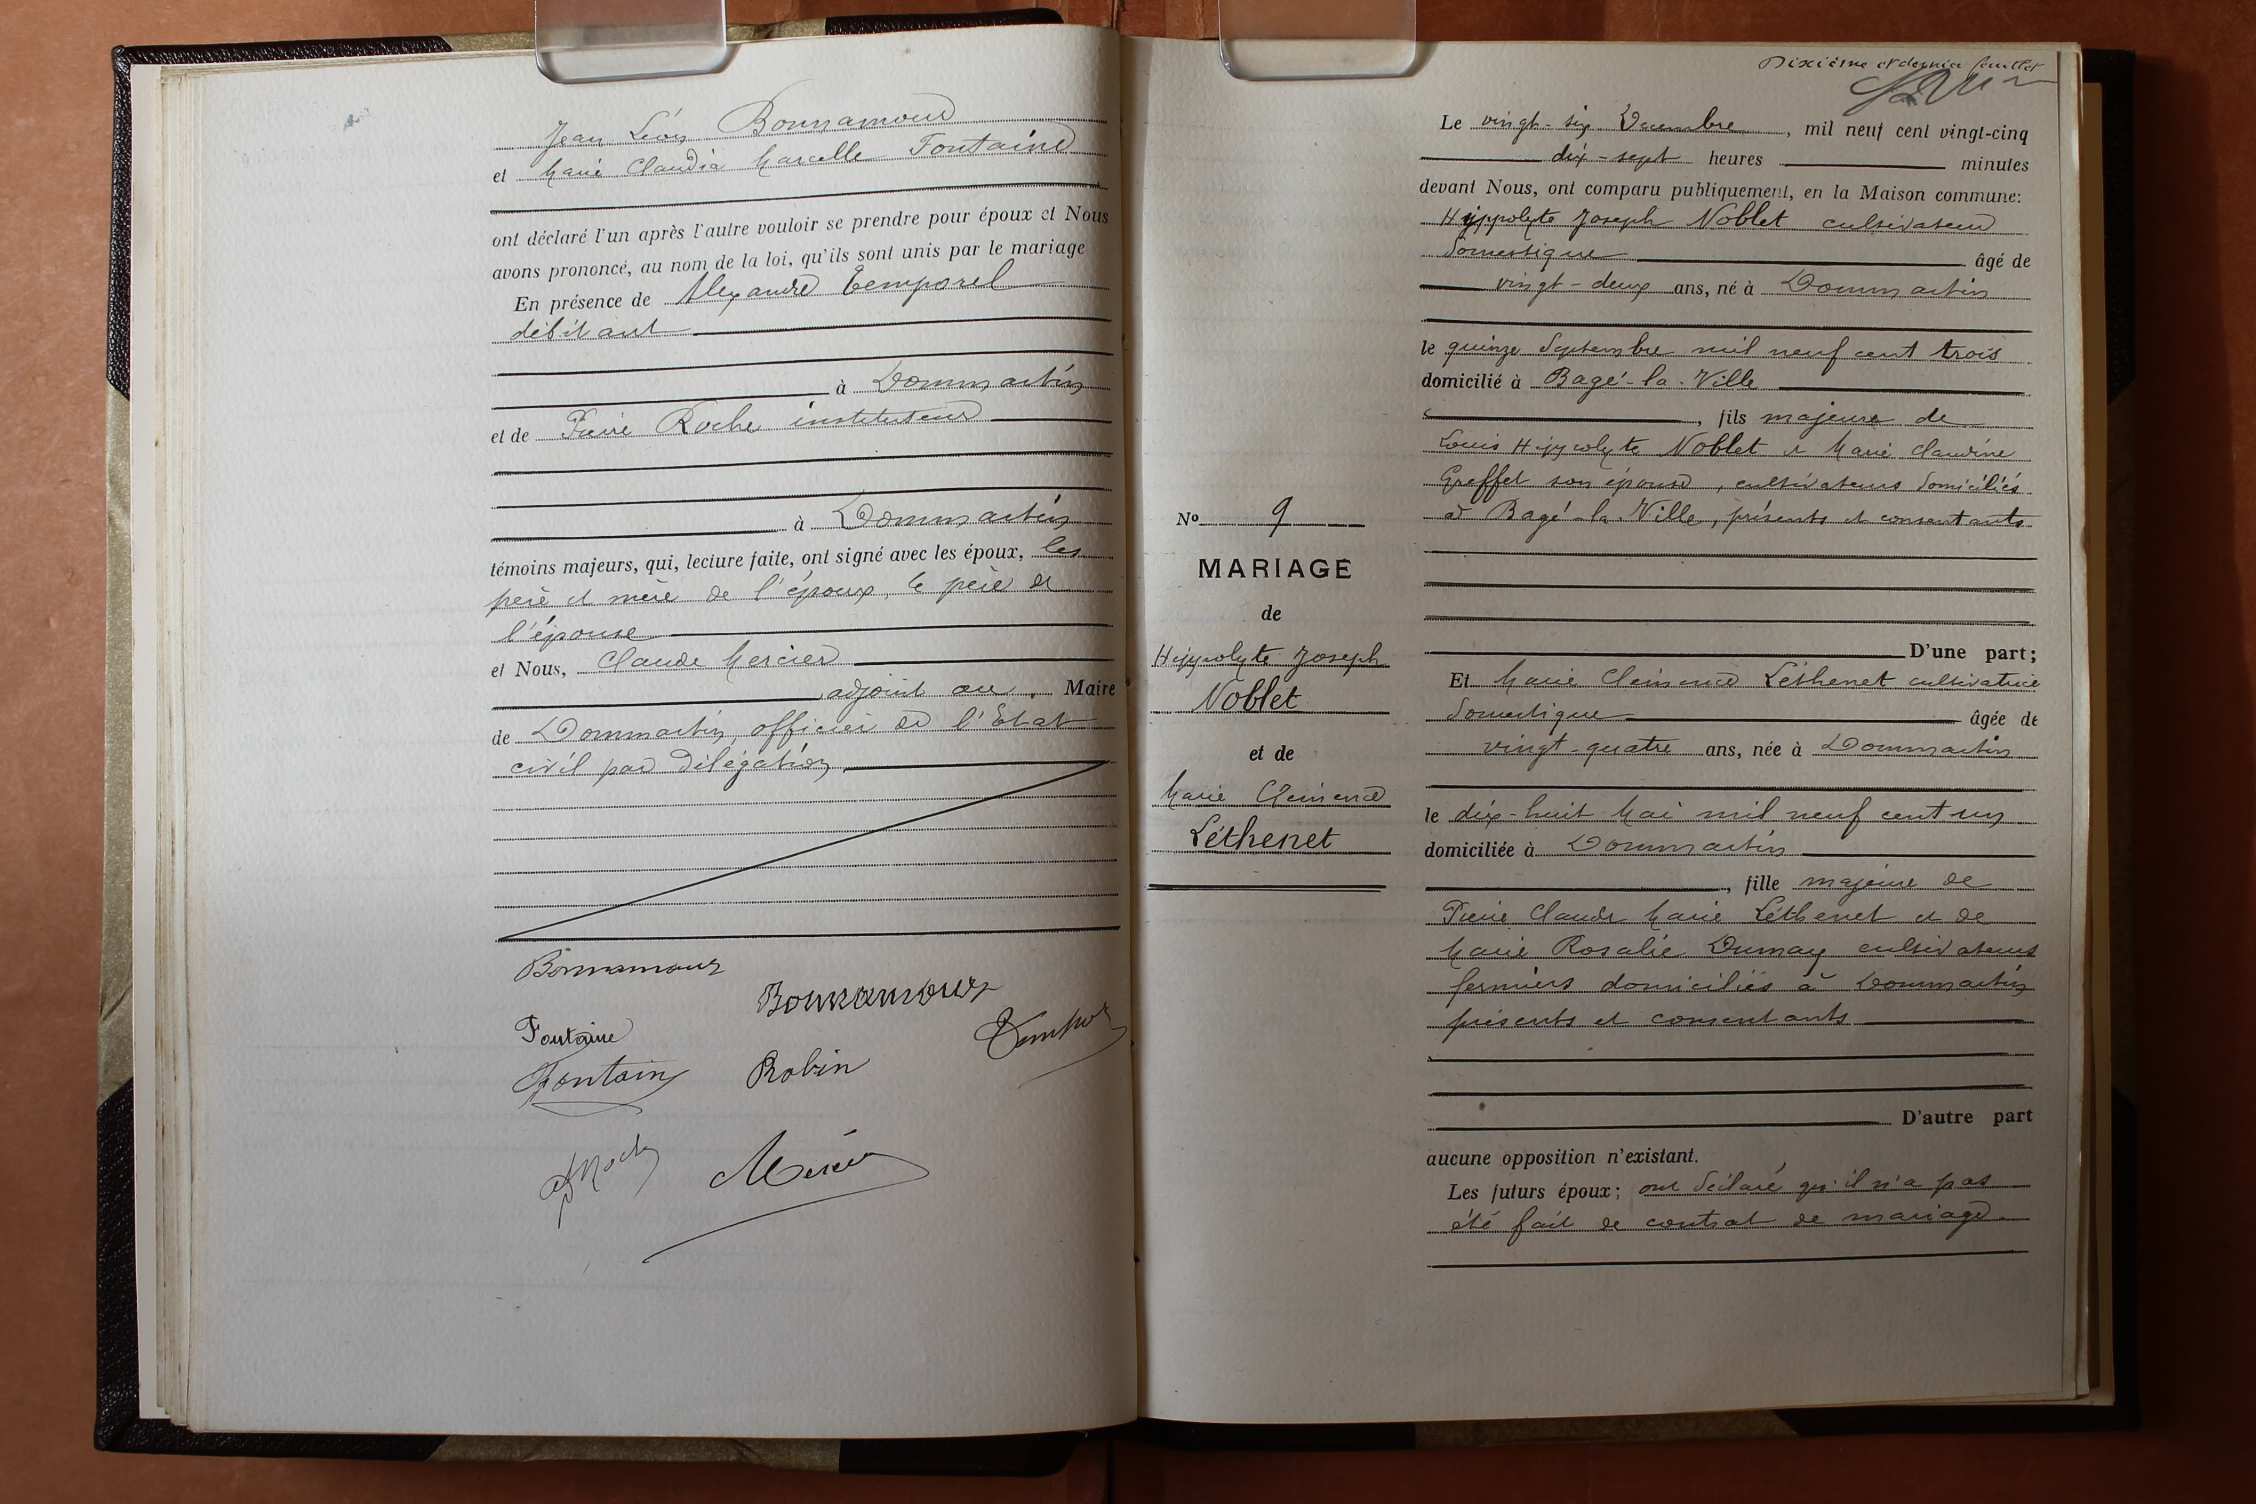 Jean Léon Bonnamour
et Marie Claudia Marcelle Fontaine
ont déclaré l'un après l'autre vouloir se prendre pour époux et Nous
avons prononcé, au nom de la loi, qu'ils sont unis par le mariage
En présence de Alexandre Temporel
débitant
à Dommartin
et de Pierre Roche instituteur
à Dommartin
témoins majeurs, qui, lecture faite, ont signé avec les époux, les
père et mère de l'époux, le père de
l'épouse
et Nous, Claude Mercier
adjoint au Maire
de Dommartin, officier de l'Etat
civil par délégation
Bonnamour
Bonnamour
Fontaine
Fontain
Robin
Mercier
Dixième et dernier feuillet
Le vingt-six Décembre, mil neuf cent vingt-cinq
dix-sept heures minutes
devant Nous, ont comparu publiquement, en la Maison commune:
Hyppolyte Joseph Noblet cultivateur
domestique âgé de
vingt-deux ans, né à Dommartin
le quinze Septembre mil neuf cent trois
domicilié à Bagé-la-Ville
, fils majeur de
Louis Hippolyte Noblet et Marie Claudine
Greffet son épouse, cultivateurs domiciliés
à Bagé-la-Ville, présents et consentants
D'une part;
Et Marie Clémence Léthenet cultivatrice
domestique âgée de
vingt-quatre ans, née à Dommartin
le dix-huit Mai mil neuf cent un
domiciliée à Dommartin
, fille majeure de
Pierre Claude Marie Léthenet et de
Marie Rosalie Dumay cultivateurs
fermiers domiciliés à Dommartin
présents et consentants
D'autre part
aucune opposition n'existant.
Les futurs époux; ont déclaré qu'il n'a pas
été fait de contrat de mariage
No 9
MARIAGE
de
Hippolyte Joseph
Noblet
et de
Marie Clémence
Léthenet